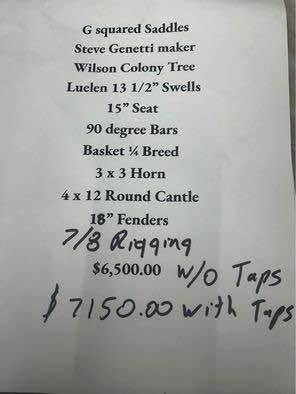 G squared Saddles
Steve Genetti maker
Wilson Colony Tree
Luelen 13 1/2” Swells
15” Seat
90 degree Bars
Basket ¼ Breed
3 x 3 Horn
4 x 12 Round Cantle
18” Fenders
7/8 Rigging
$6,500.00 W/O Taps
$7150.00 with Taps